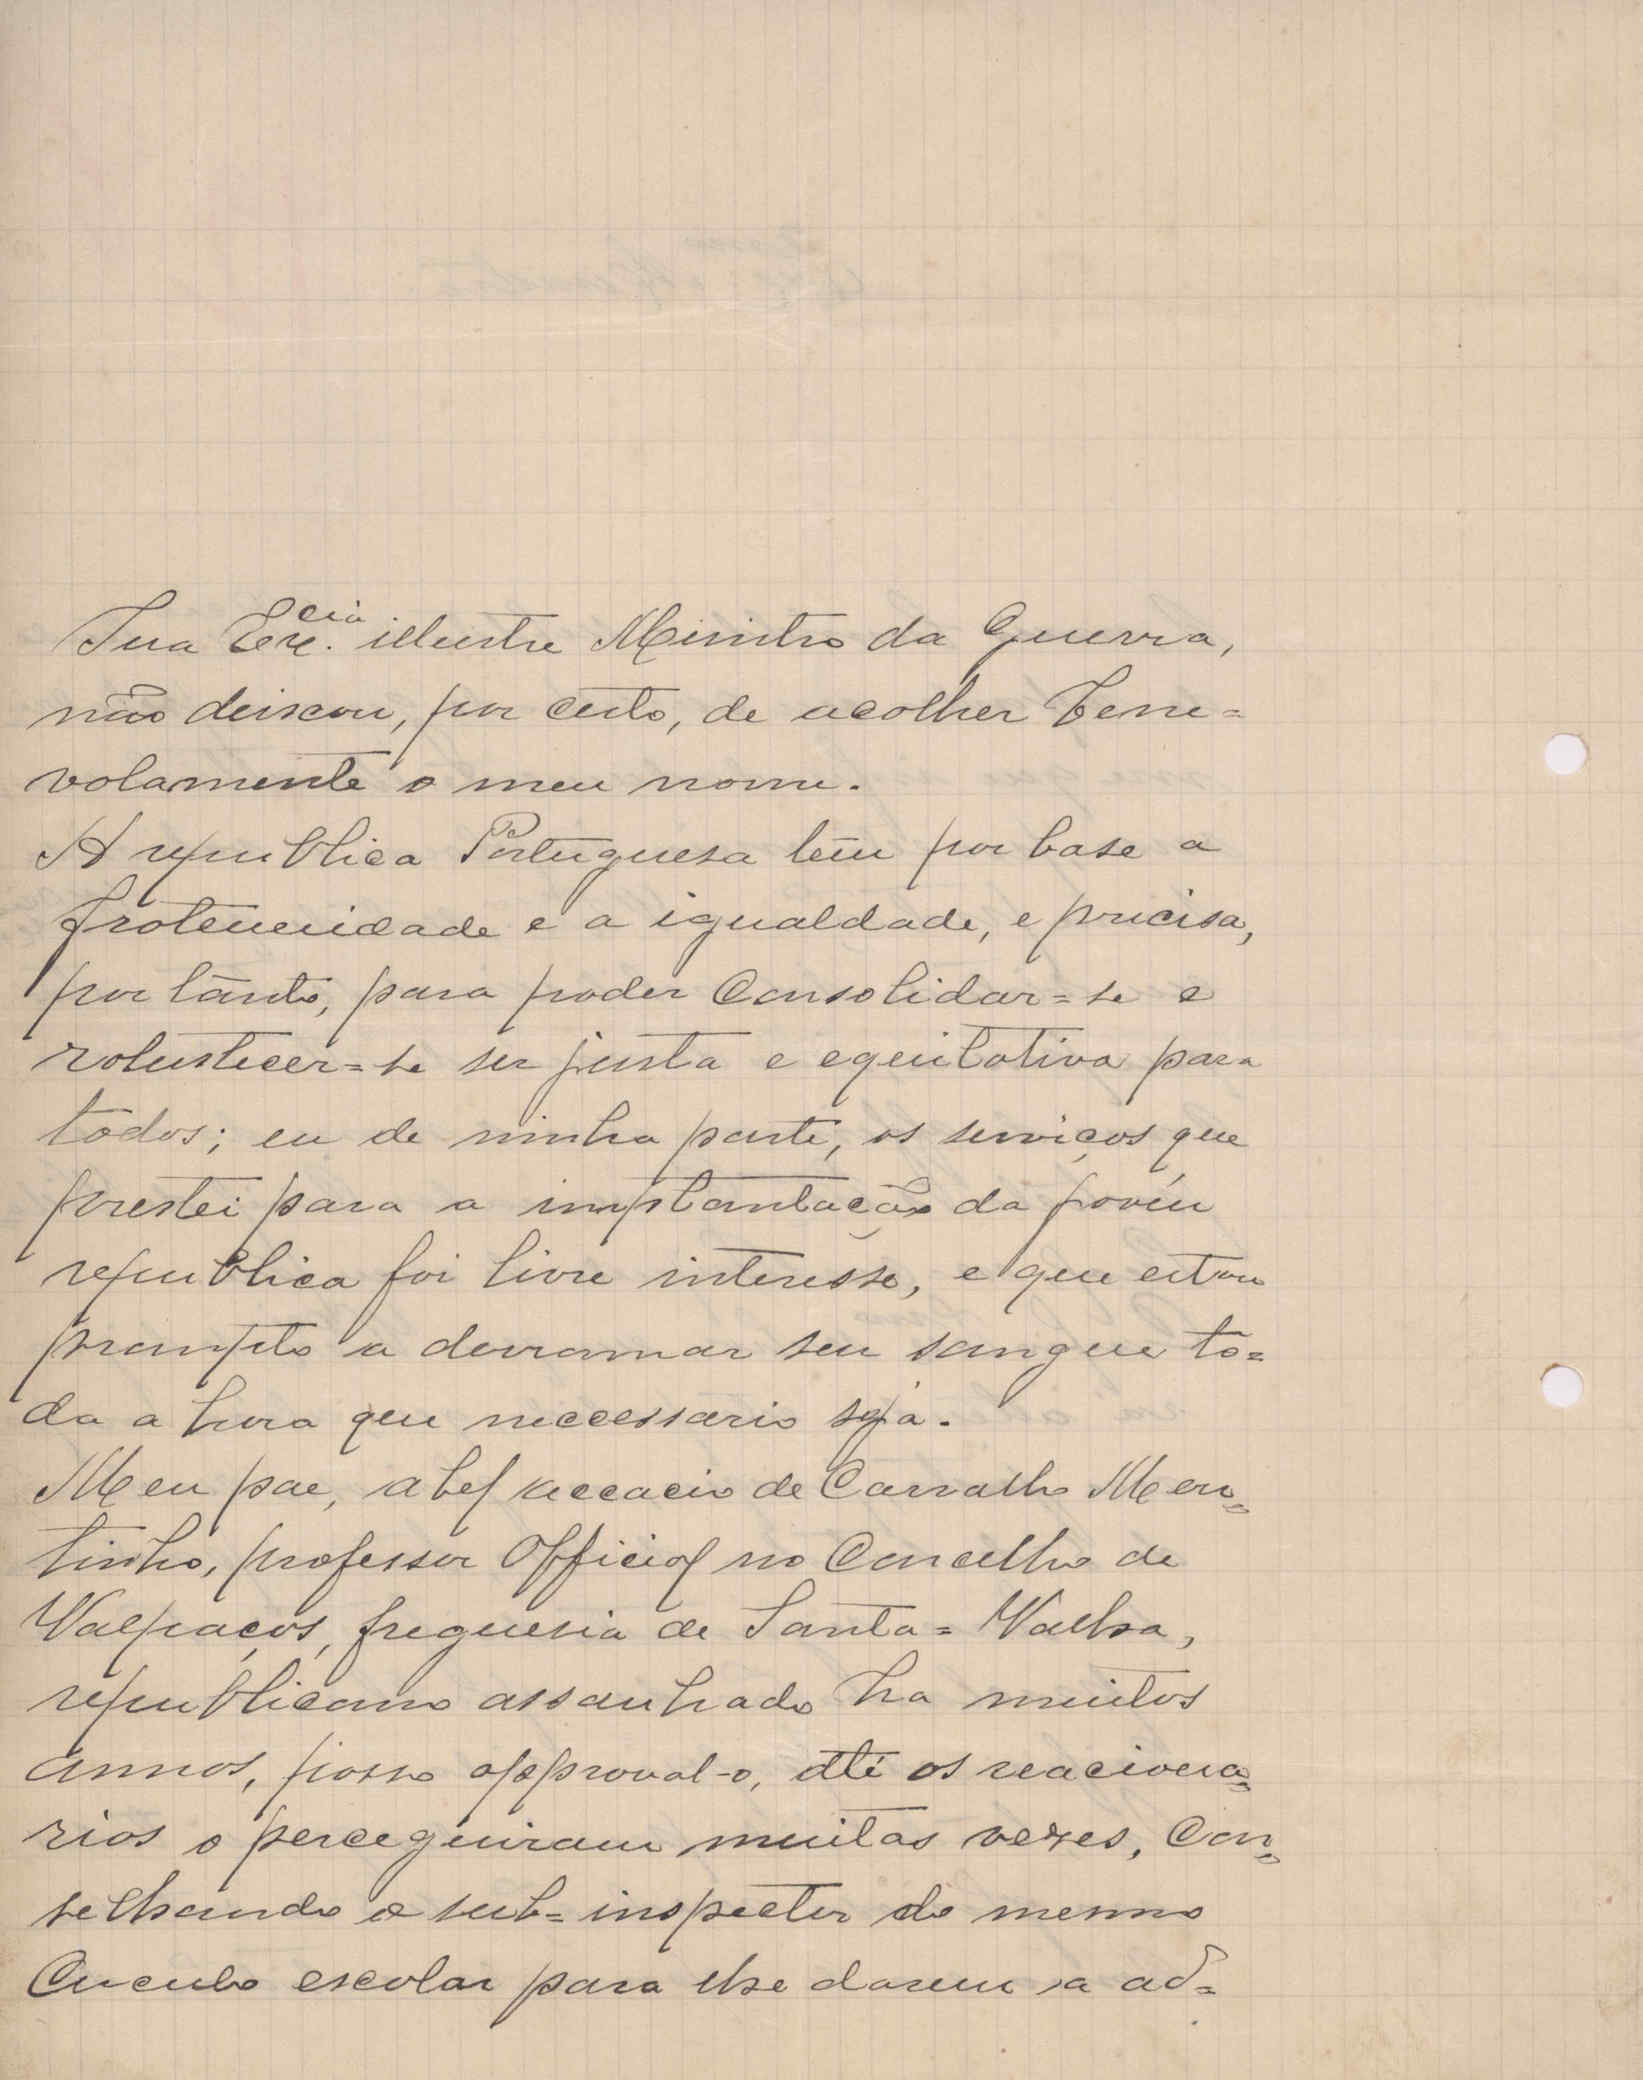 Sua Exc.cia illustre Ministro da Guerra,
não deixou, por certo, de acolher bene=
volamente o meu nome.
A republica Portuguesa tem por base a
froternidade e a igualdade, e precisa,
por tanto, para poder Consolidar=se e
robustecer=se ser justa e equitativa para
todos; eu de minha parte, os serviços que
prestei para a implantação da jovén
republica foi livre interesse, e que estou
prompto a derramar seu sangue to=
da a hora que neccessario seja.
Meu pae, abel accacio de Carvalho Mou=
tinho, professor Official no Concelho de
Valpaços, freguesia de Santa=Valha,
republicano assanhado ha muitos
annos, posso approval-o, até os reaciona=
rios o perceguiram muitas vezes, Con=
selhando o sub=inspector do mesmo
Circulo escolar para lhe darem a ad=